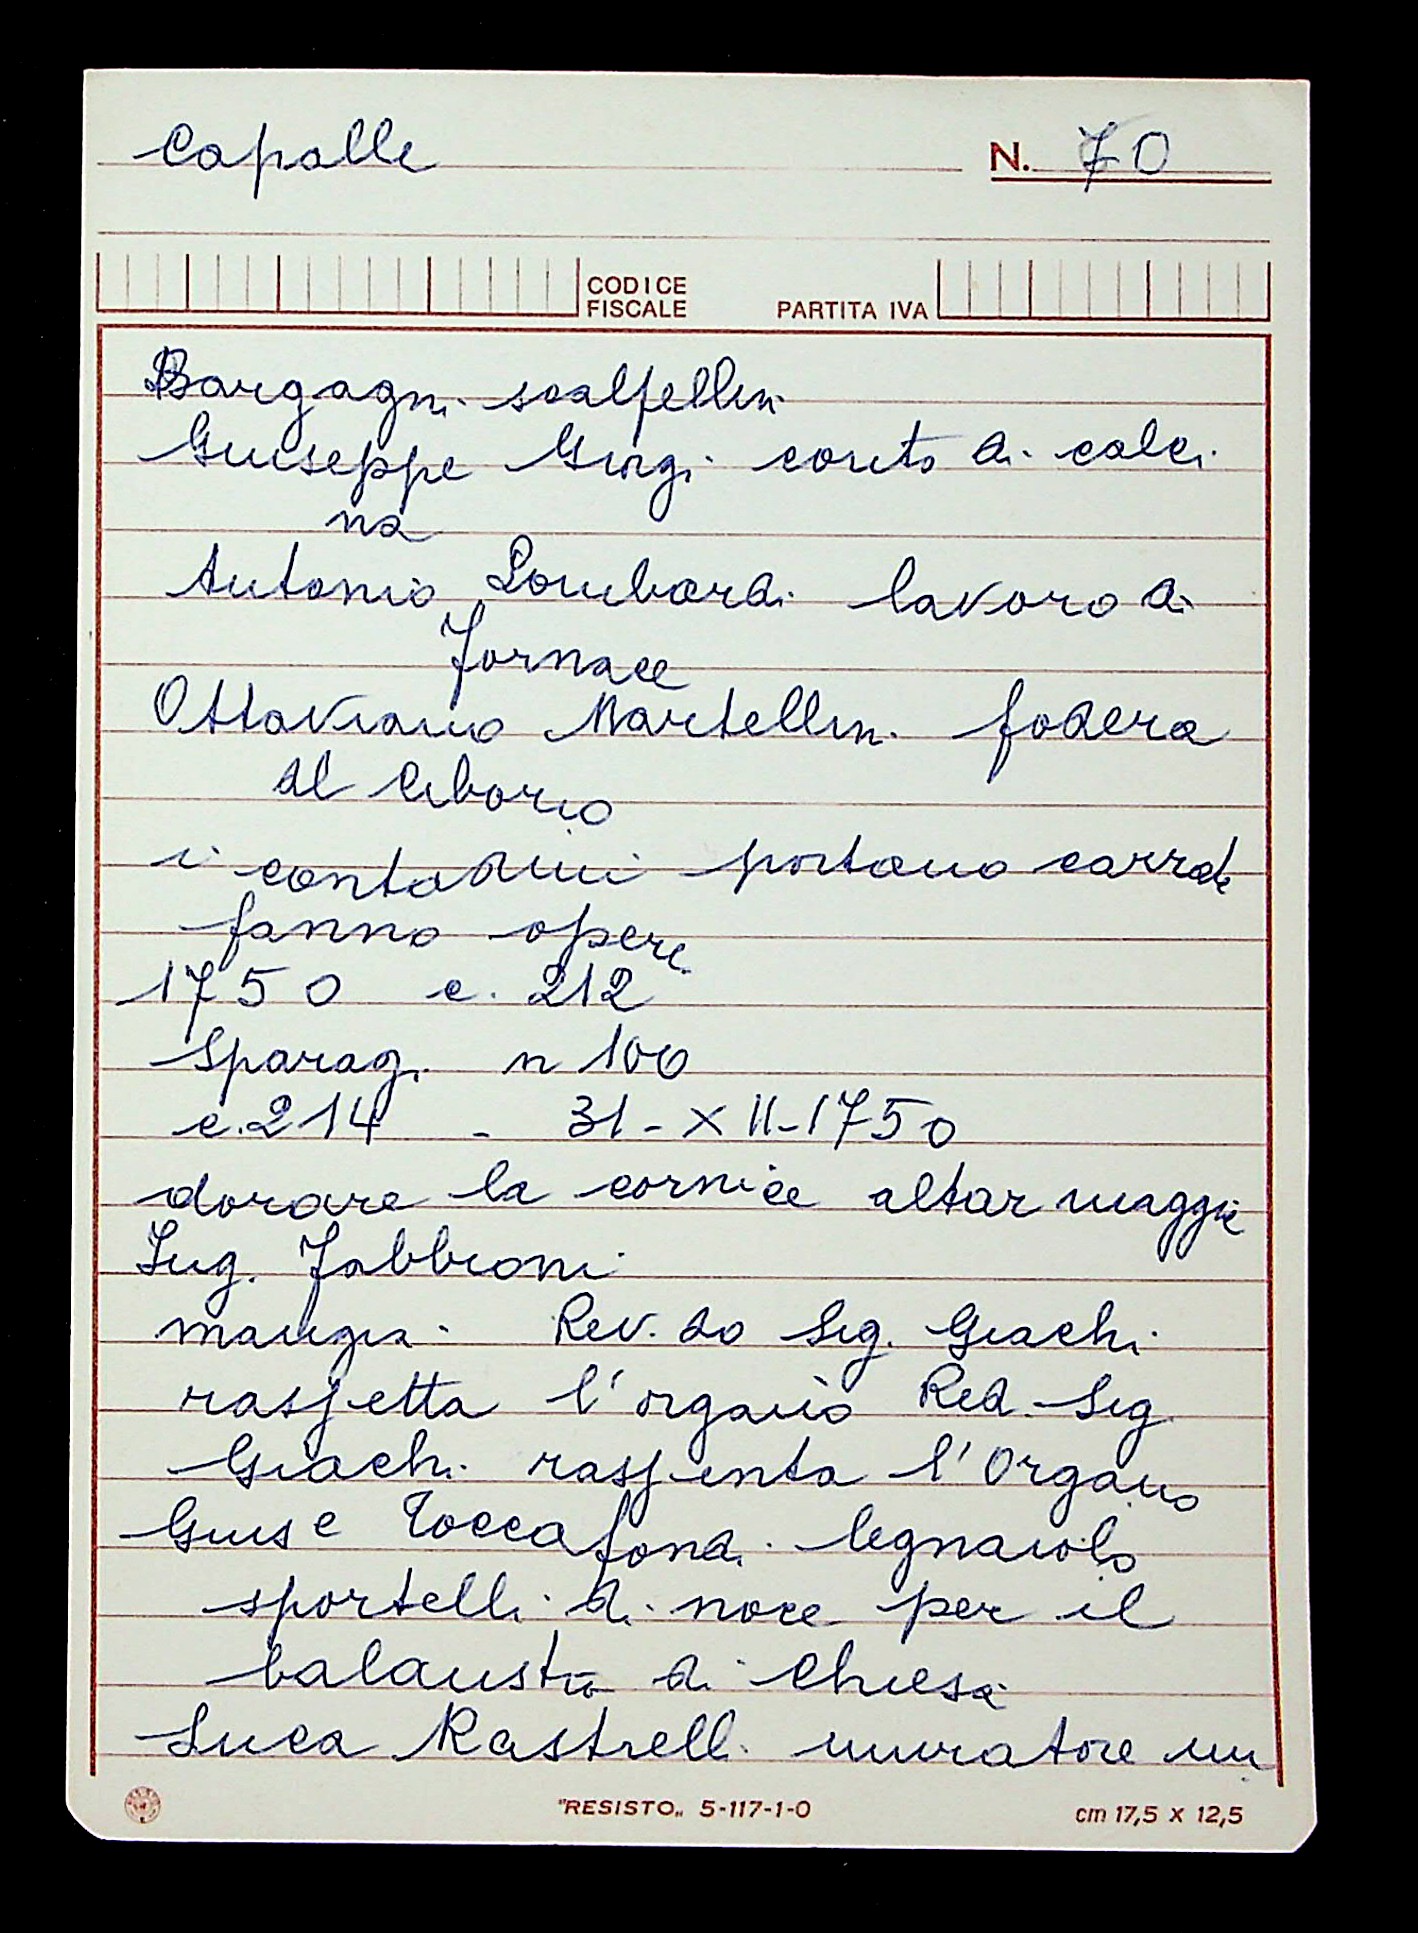 Capalle
N. 70
CODICE
FISCALE
PARTITA IVA
Bargagni scalpellini
Giuseppe Giorgi conto di calci
na
Antonio Lombardi lavoro di
fornace
Ottaviano Martellini fodera
al Ciborio
i contadini portano carrate
fanno opere
1750 c. 212
Sparagi n 100
c. 214 - 31-XII-1750
dorare la cornice altar maggie
Sig. Fabbroni
mangia. Rev. do Sig. Giachi
raspetta l'organo Red. Sig.
Giachi raspenta l'Organo
Gius e Toccafondi legnaiolo
sportelli di noce per il
balaustro di Chiesa
Luca Rastrelli muratore un
"RESISTO„ 5-117-1-0
cm 17,5 x 12,5